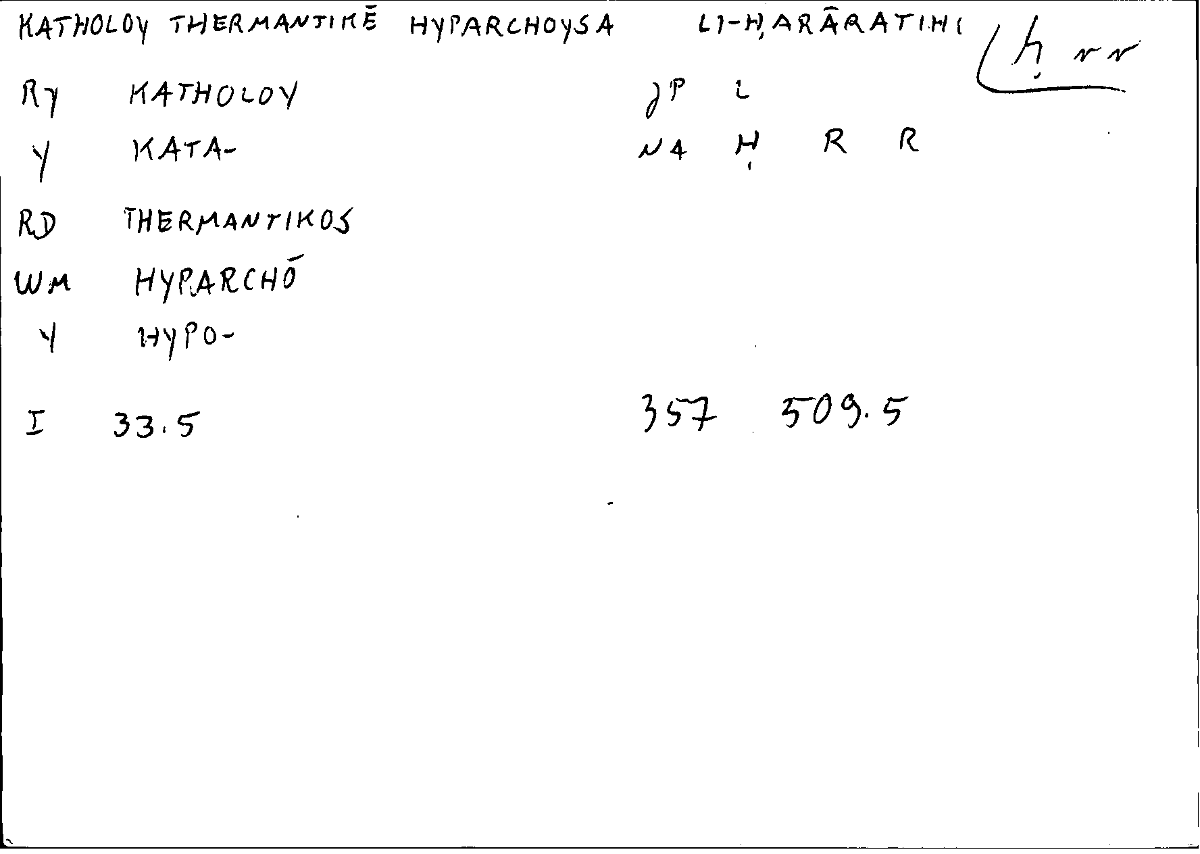 KATHOLOY THERMANTIKĒ HYPARCHOYSA LI-ḤARĀRATIHI ḥ rr
RY KATHOLOY JP L
Y KATA- NA Ḥ R R
RD THERMANTIKOS
WM HYPARCHŌ
Y HYPO-
I 33.5 357 509.5